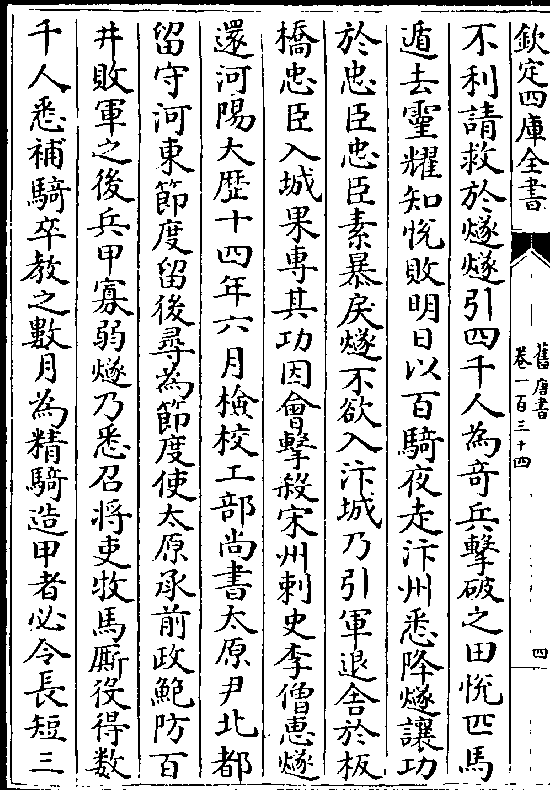 欽定四庫全書
舊唐書
卷一百三十四
四
不利請救於燧燧引四千人為竒兵擊破之田悅匹馬
遁去靈耀知悅敗明日以百騎夜走汴州悉降燧讓功
於忠臣忠臣素暴戾燧不欲入汴城乃引軍退舍於板
橋忠臣入城果專其功因會擊殺宋州刺史李僧惠燧
還河陽大歴十四年六月檢校工部尚書太原尹北都
留守河東節度留後尋為節度使太原承前政鮑防百
井敗軍之後兵甲寡弱燧乃悉召将吏牧馬厮役得数
千人悉補騎卒教之數月為精騎造甲者必令長短三